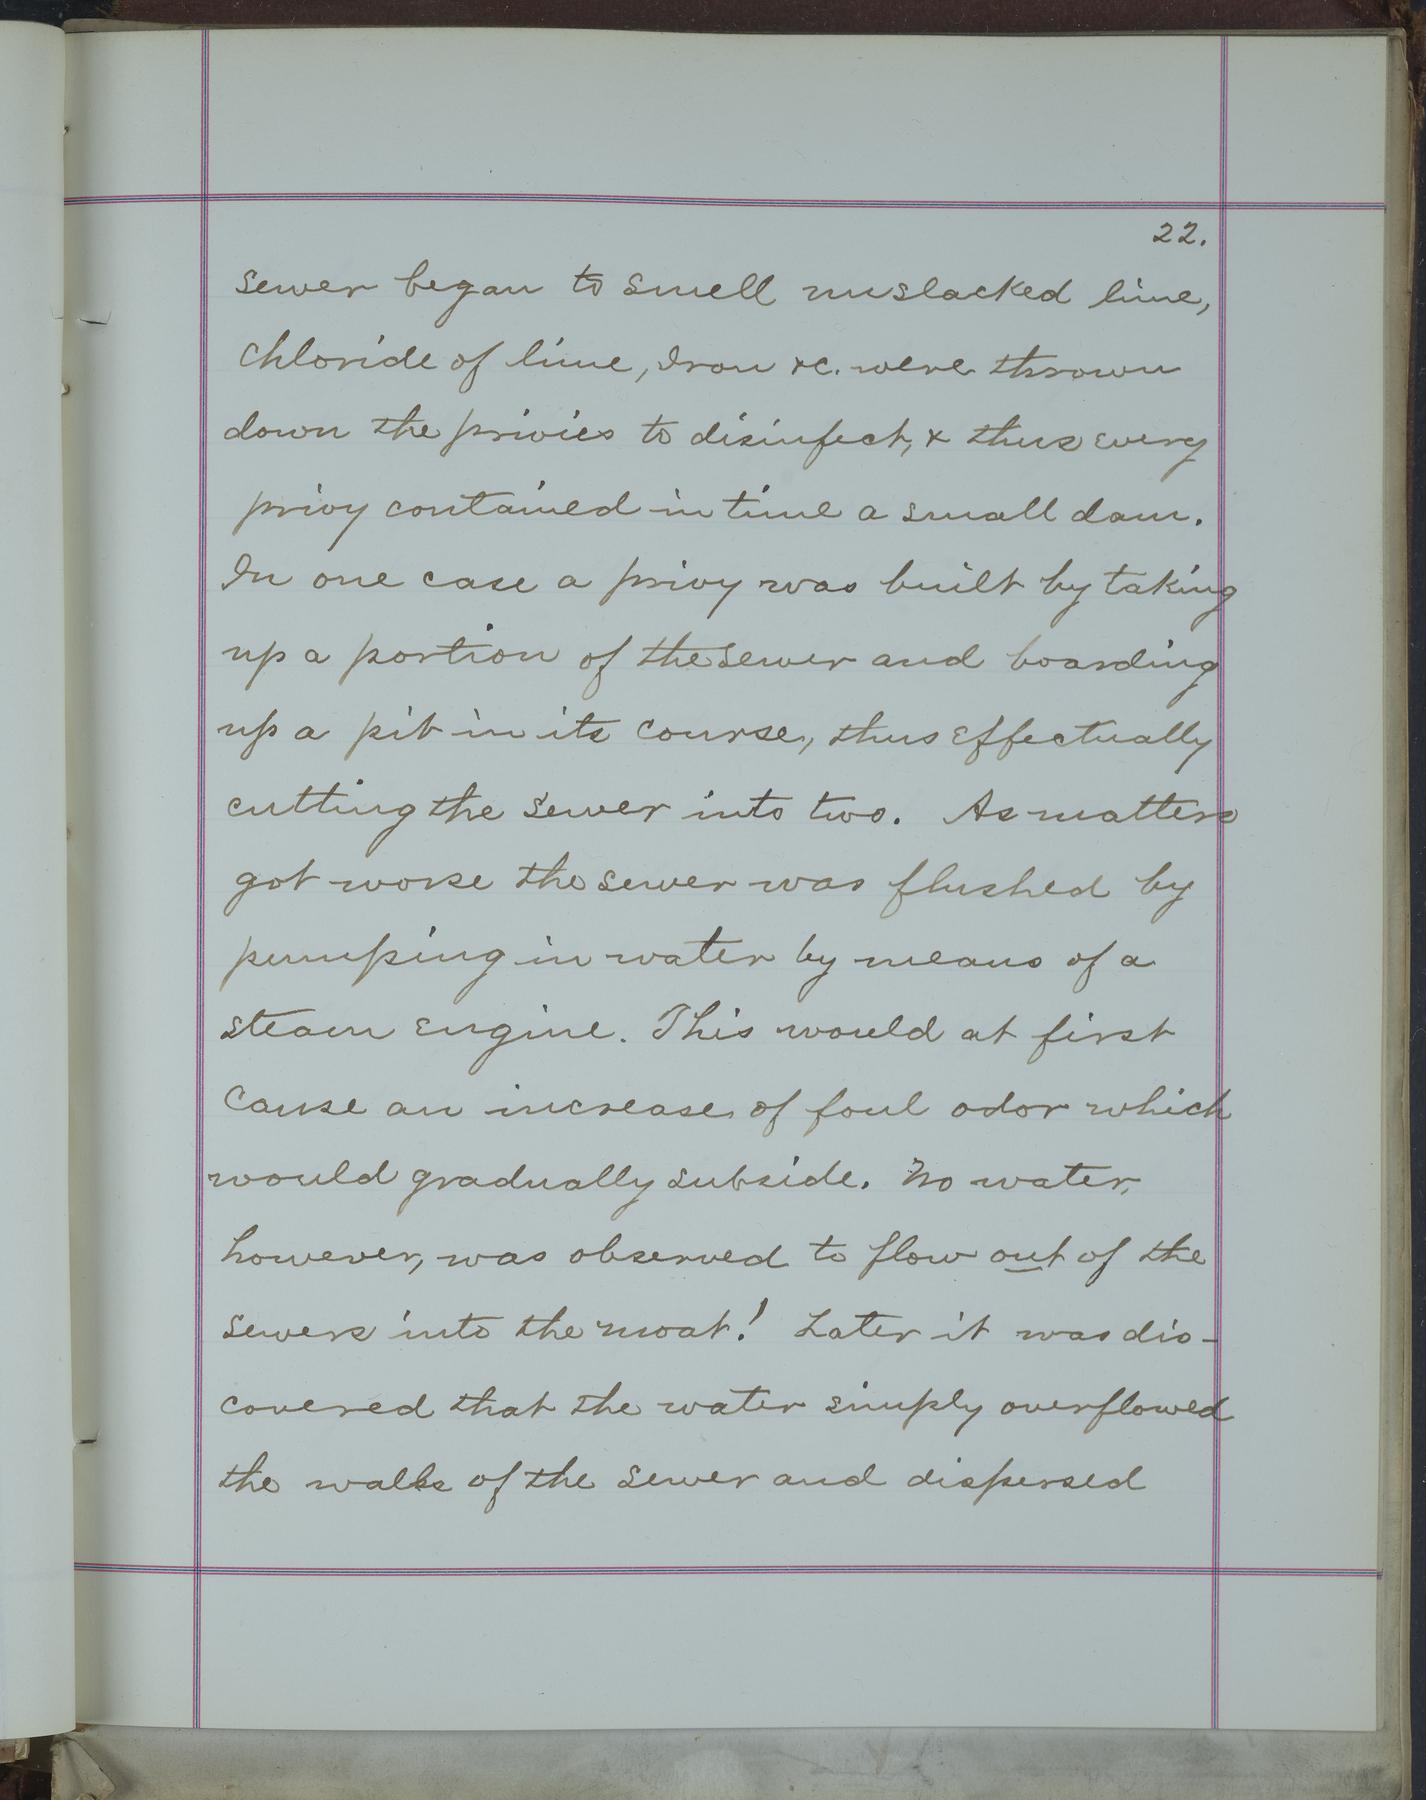 22.
sewer began to smell unslacked lime,
chloride of lime, Iron &c. were thrown
down the privies to disinfect, & thus every
privy contained in time a small dam.
In one case a privy was built by taking
up a portion of the sewer and boarding
up a pit in its course, thus effectually
cutting the sewer into two. As matters
got worse the sewer was flushed by
pumping in water by means of a
steam engine. This would at first
cause an increase of foul odor which
would gradually subside. No water,
however, was observed to flow out of the
sewers into the moat! Later it was dis-
covered that the water simply overflowed
the walls of the sewer and dispersed